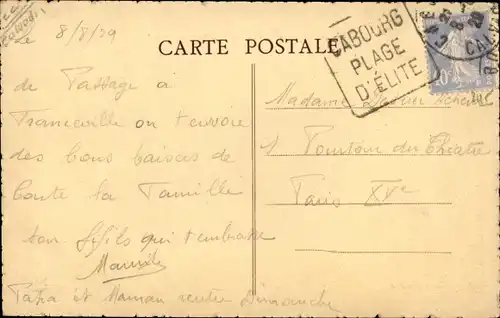 Le 8/8/29
CARTE POSTALE
CABOURG
PLAGE
D'ÉLITE
de Passage a
Franceville on t'envoie
des bons baisers de
toute la Famille
ton fifils qui t'embrasse
Marcel
Papa et Maman rentre Dimanche
Madame
1 Pourtour du Théatre
Paris XVe